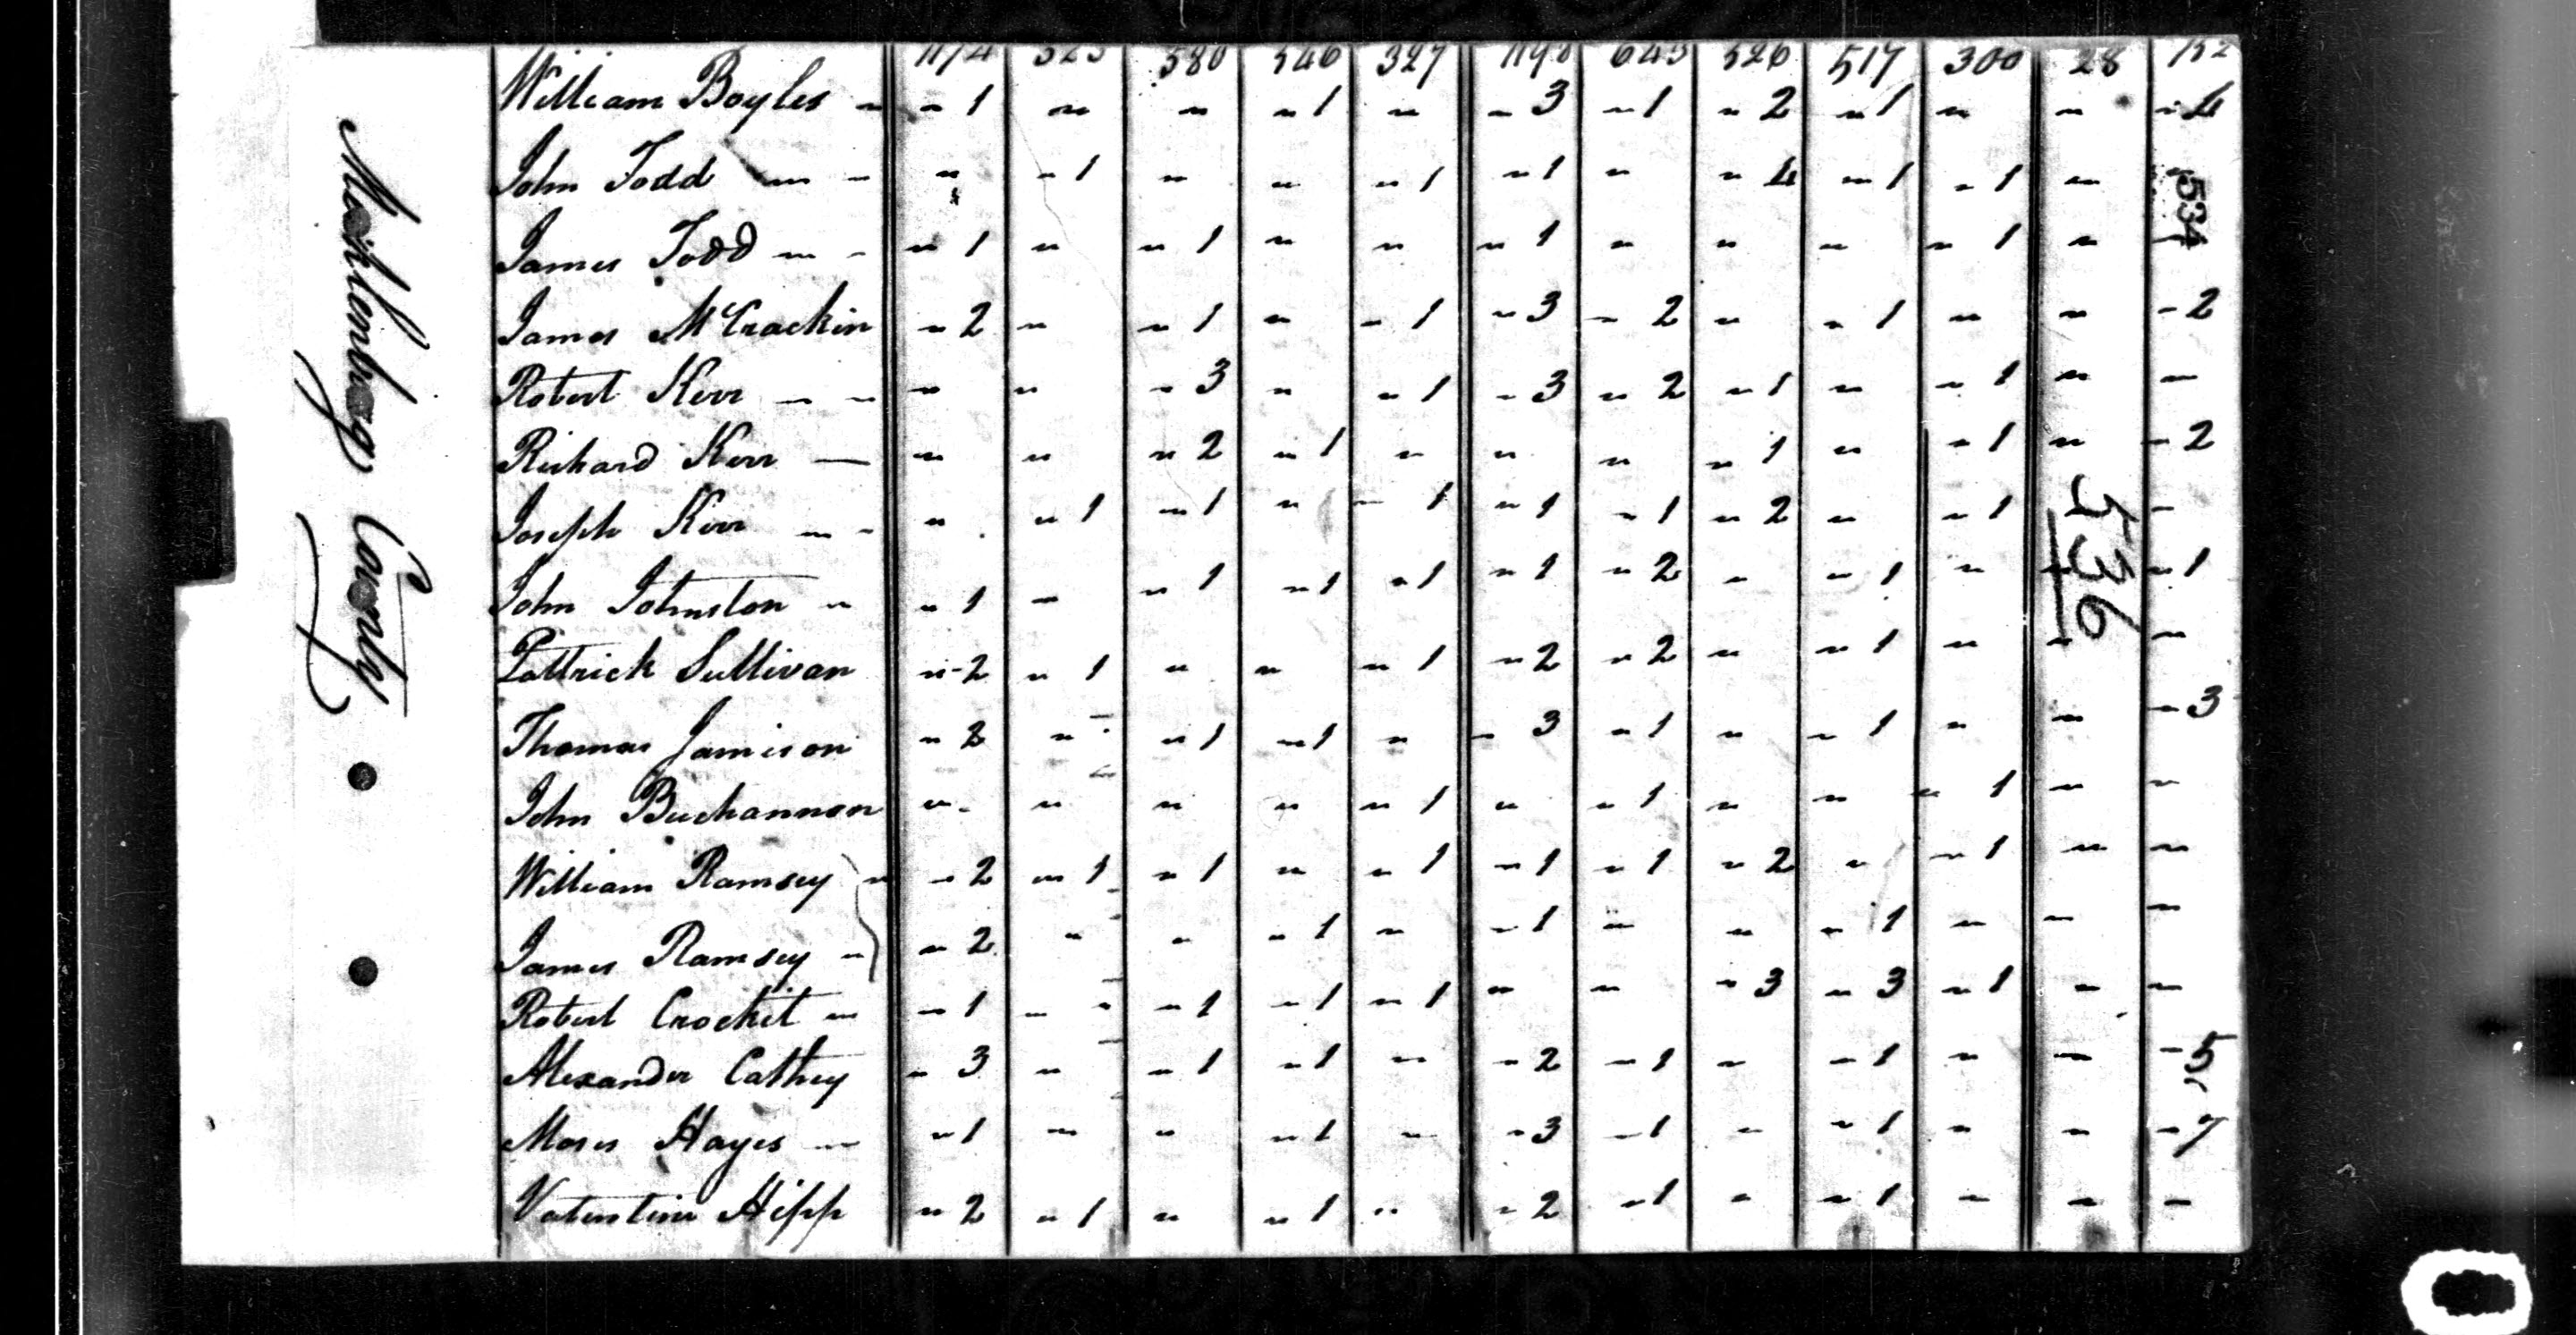 Mecklenburg County
1174 323 580 546 327 1198 645 526 517 300 28 152
William Boyles - 1 - - 1 - 3 1 2 1 - - 4
John Todd - - 1 - - 1 1 - 4 1 1 - -
534
James Todd - 1 - 1 - - 1 - - - 1 - -
James McCrackin - 2 - 1 - 1 3 2 - 1 - - 2
Robert Kerr - - - 3 - 1 3 2 1 - 1 - -
Richard Kerr - - - 2 1 - - - 1 - 1 - 2
Joseph Kerr - - 1 1 - 1 1 1 2 - 1 - -
536
John Johnston - 1 - 1 1 1 1 2 - 1 - - 1
Pattrick Sullivan - 2 1 - - 1 2 2 - 1 - - -
Thomas Jamison - 2 - 1 1 - 3 1 - 1 - - 3
John Buchannon - - - - - 1 - 1 - - 1 - -
William Ramsey - 2 1 1 - 1 1 1 2 - 1 - -
James Ramsey - 2 - - 1 - 1 - - 1 - - -
Robert Crocket - 1 - 1 1 1 - - 3 3 1 - -
Alexander Cathey - 3 - 1 1 - 2 1 - 1 - - 5
Moses Hayes - 1 - - 1 - 3 1 - 1 - - 7
Valentine Hipp - 2 1 - 1 - 2 1 - 1 - - -